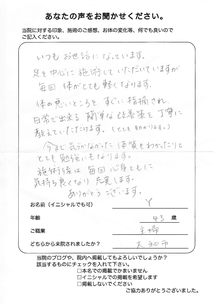 あなたの声をお聞かせください。
当院に対する印象、施術のご感想、お体の変化等、何でも良いので
ご記入ください。
いつもお世話になっています。
足を中心に施術していただいていますが
毎回 体がとても軽くなります。
日常で出来る簡単な体操を丁寧に
教えていただけます。(とてもわかりやすい)
今まで気がつかなかった
とても勉強になります。
施術後は毎回 心身ともに
気持ち良くなり 充実します。
ありがとうございます。
お名前(イニシャルでも可) Y
年齢 43 歳
ご職業 主婦
どちらから来院されましたか? 大和市
当院のブログや、院内へ掲載してもよろしいでしょうか?
該当するものにチェックを入れて下さい。
□本名での掲載でかまいません
□イニシャルで掲載希望
□掲載しないでください
ご協力ありがとうございました。